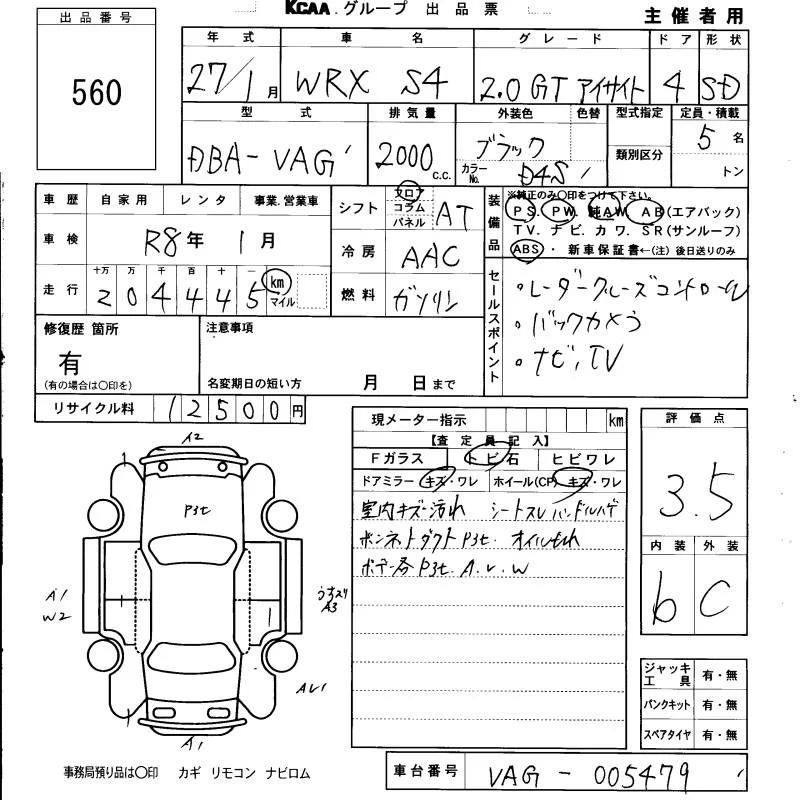 KCAA. グループ 出品票
主催者用
出品番号
560
年式 車名 グレード ドア 形状
27/1月 WRX S4 2.0GT アイサイト 4 SD
型式 排気量 外装色 色替 型式指定 定員・積載
DBA-VAG 2000 c.c. ブラック カラーNo. D4S 類別区分 5名
トン
車歴 自家用 レンタ 事業.営業車
車検 R8年 1月
走行 十万 万 千 百 十 一
204445 km マイル
シフト フロア コラム パネル AT
冷房 AAC
燃料 ガソリン
装備品
※純正のみ〇印をつけて下さい。
PS. PW. 純AW. AB(エアバック)
TV. ナビ. カワ. SR(サンルーフ)
ABS・新車保証書←(注)後日送りのみ
セールスポイント
・レーダークルーズコントロール
・バックカメラ
・ナビ、TV
修復歴 箇所
有
(有の場合は〇印を)
注意事項
名変期日の短い方 月 日まで
リサイクル料 12500円
現メーター指示 km
【査定員記入】
Fガラス トビ石 ヒビワレ
ドアミラー キズ・ワレ ホイール(CP) キズ・ワレ
室内キズ・汚れ シートスレ ハンドルハゲ
ボンネットダクトP3t. オイルもれ
ボデー各P3t. A.U.W
評価点
3.5
内装 外装
b C
A2
1
P3t
A1
W2
1
1
うすスリ
A3
AU1
1
A1
ジャッキ工具 有・無
パンクキット 有・無
スペアタイヤ 有・無
事務局預り品は〇印 カギ リモコン ナビロム
車台番号 VAG - 005479